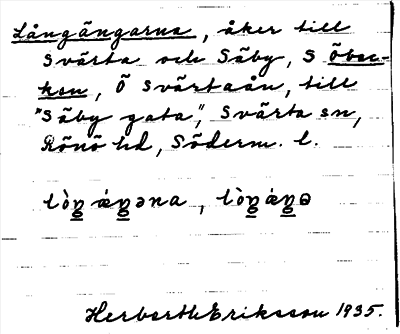 Långängarna, åker till
Svärta och Säby, S Öbac-
ken, Ö Svärtaån, till
"Säby gata", Svärta sn,
Rönö hd, Söderm. l.
lòŋ áŋəna, lòŋáŋə
Herbert Eriksson 1935.